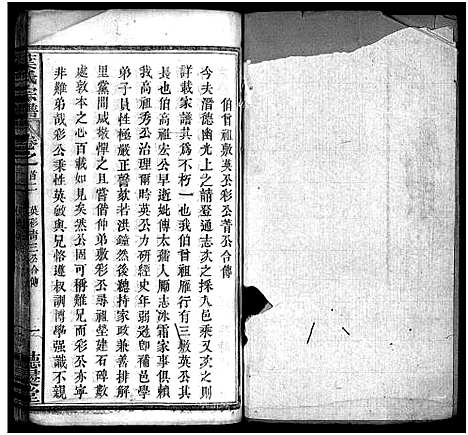 伯曾祖敷英公彩公菁公合傳
今夫潛德幽光上之請登通志次之採入邑乘又次之
詳載家譜其為不朽一也我伯曾祖雁行有三敷英公其
伯也高祖宏公早逝妣傅太孺人勵志冰霜家事俱賴
我高祖秀公治理爾時英公力研經史年弱冠即補邑學
弟子員性極嚴正聲欬若洪鐘然後總持家政兼善排解
里黨間咸敬憚之且嘗偕仲弟敷彩公尋祖塋建石碑數
處敦本之心百載如見矣然公固可稱難兄而彩公亦寧
非難弟哉彩公秉性英敏與兄恪遵叔訓濟學强識不親
葉氏宗譜
卷之首二
英彩菁三公合傳
一